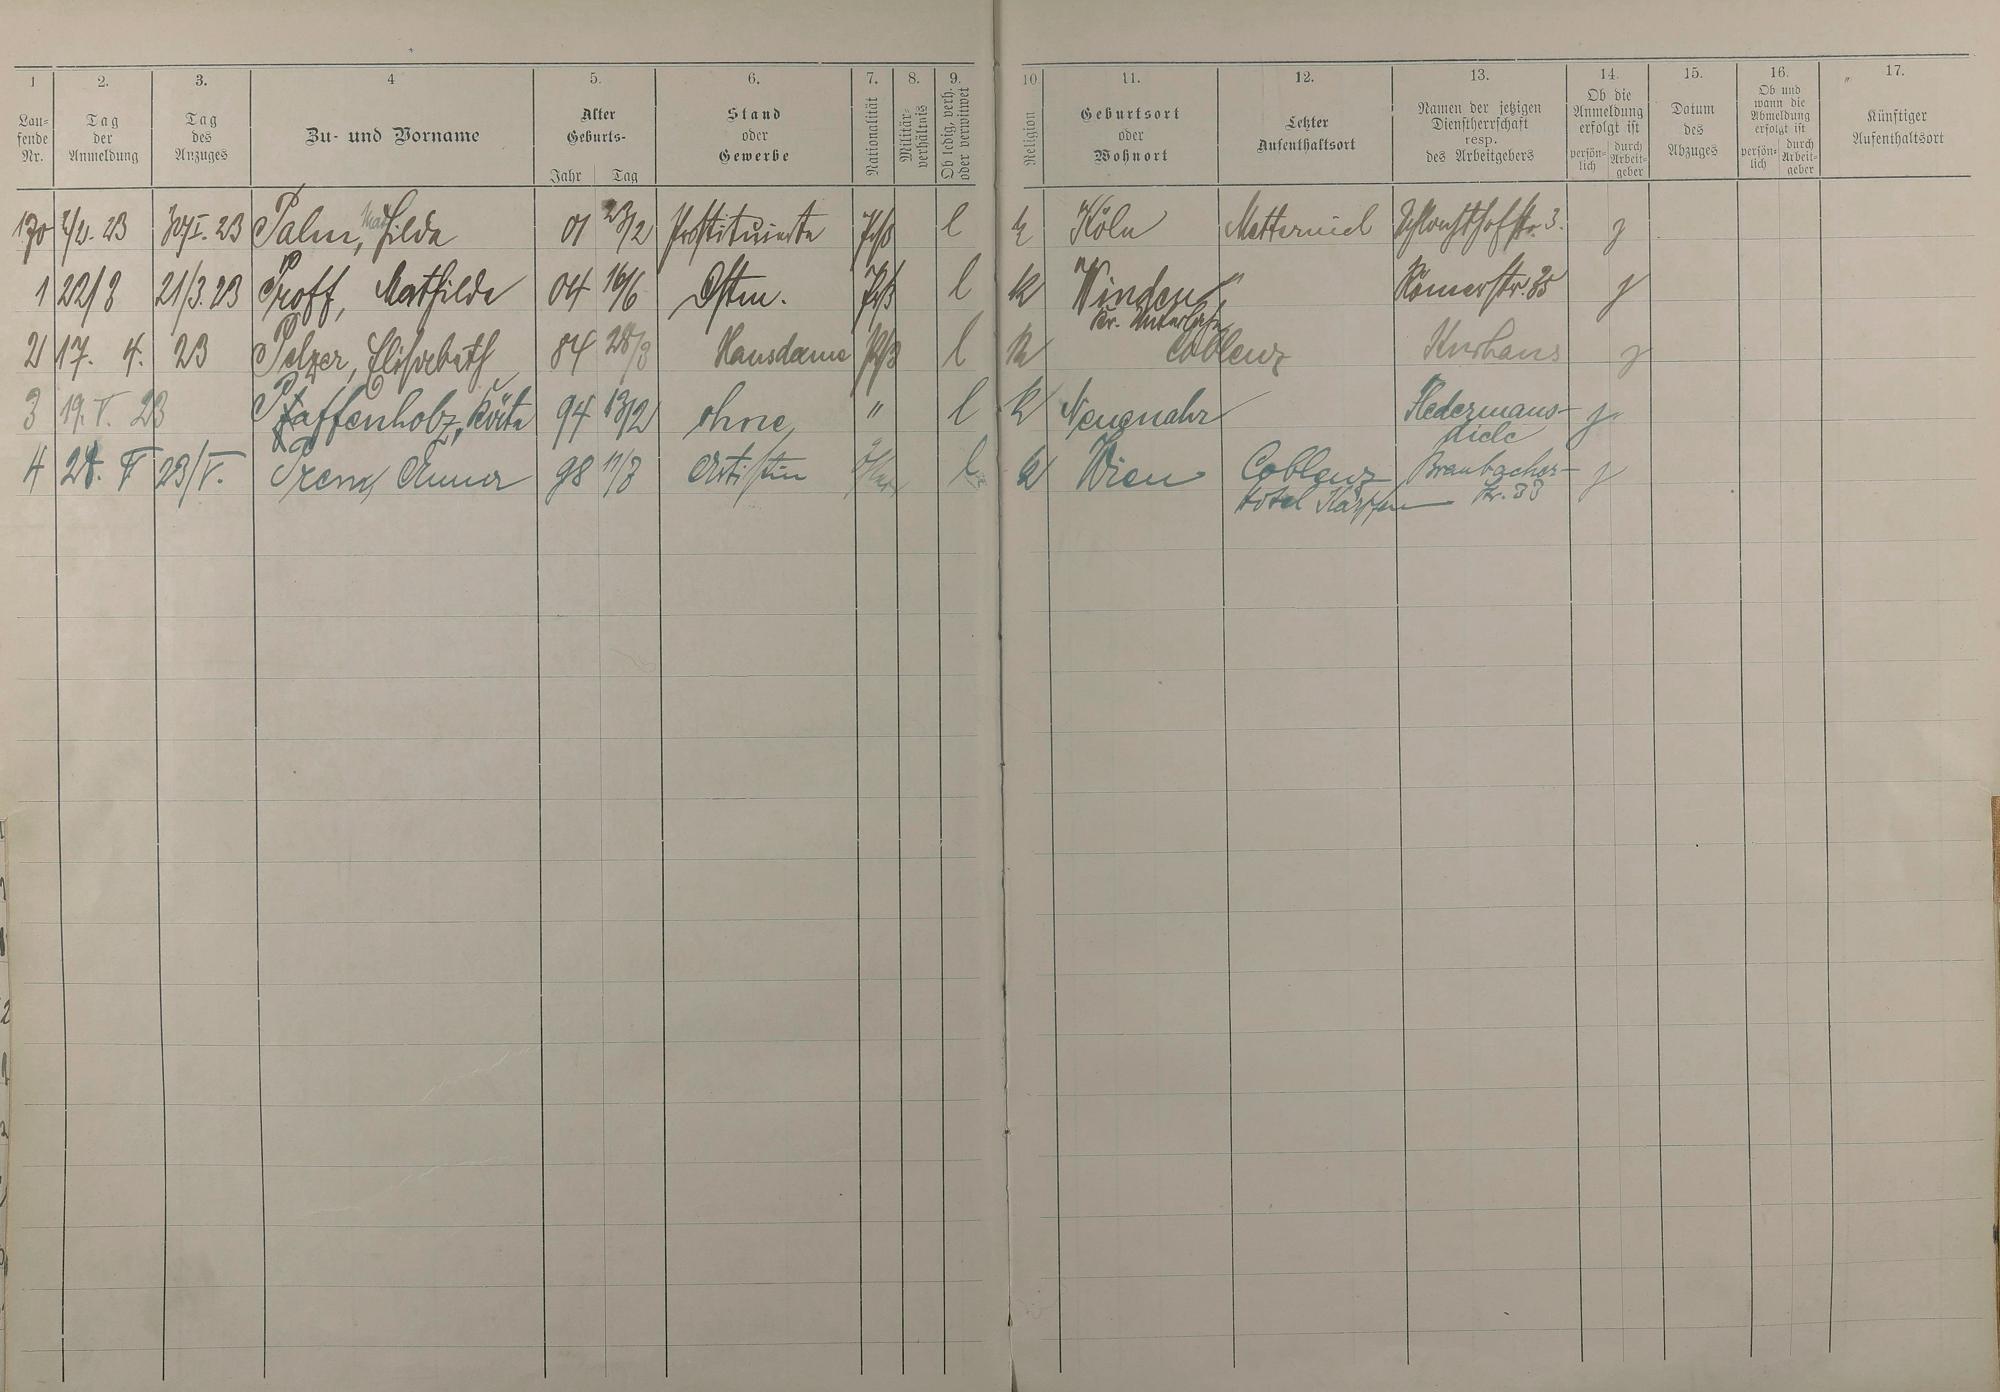 1 2. 3. 4 5. 6. 7. 8. 9. 10 11. 12. 13. 14. 15. 16. 17.
Lau-
fende
Nr.
Tag
der
Anmeldung
Tag
des
Anzuges
Zu- und Vorname
Alter
Geburts-
Jahr Tag
Stand
oder
Gewerbe
Nationalität
Militär-
verhältnis
Ob ledig, verh.
oder verwitwet
Religion
Geburtsort
oder
Wohnort
Letzter
Aufenthaltsort
Namen der jetzigen
Dienstherrschaft
resp.
des Arbeitgebers
Ob die
Anmeldung
erfolgt ist
persön-
lich
durch
Arbeit-
geber
Datum
des
Abzuges
Ob und
wann die
Abmeldung
erfolgt ist
persön-
lich
durch
Arbeit-
geber
Künftiger
Aufenthaltsort
170 2/2. 23 30/I. 23 Palm, Hilda 01 23/2 Prostituierte Prß l k Köln Metternich Schlachthofstr. 3. j
1 22/3 21/3. 23 Proff, Mathilde 04 16/6 Osten. Prß l k Winden " Römerstr. 85 j
Kr. Unterlahn
2 17. 4. 23 Pelzer, Elisabeth 84 28/3 Hausdame Prß l k Coblenz Kurhaus j
3 19. V. 23 Pfaffenholz, Käte 94 13/2 ohne " l k Neuenahr Fledermaus- j
diele
4 24. V 23/V. Anna 98 17/8 Artistin l k Wien Coblenz Braubacher- j
Hotel Karpfen str. 33